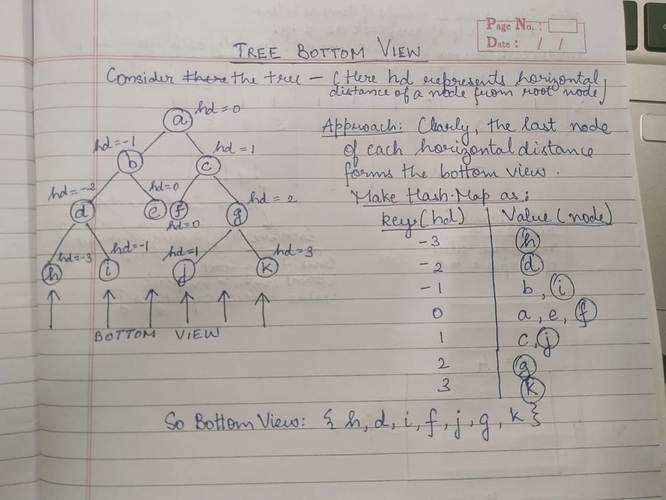 Page No. :
Date : / /
TREE BOTTOM VIEW
Consider the tree — (Here hd represents horizontal
distance of a node from root node)
a hd=0
hd=-1 b c hd=1
hd=-2 d hd=0 e f hd=0 g hd=2
hd=-3 h i hd=-1 j hd=1 k hd=3
BOTTOM VIEW
Approach: Clearly, the last node
of each horizontal distance
forms the bottom view.
Make Hash-Map as:
key (hd) Value (node)
-3 h
-2 d
-1 b, i
0 a, e, f
1 c, j
2 g
3 k
So Bottom View: { h, d, i, f, j, g, k }